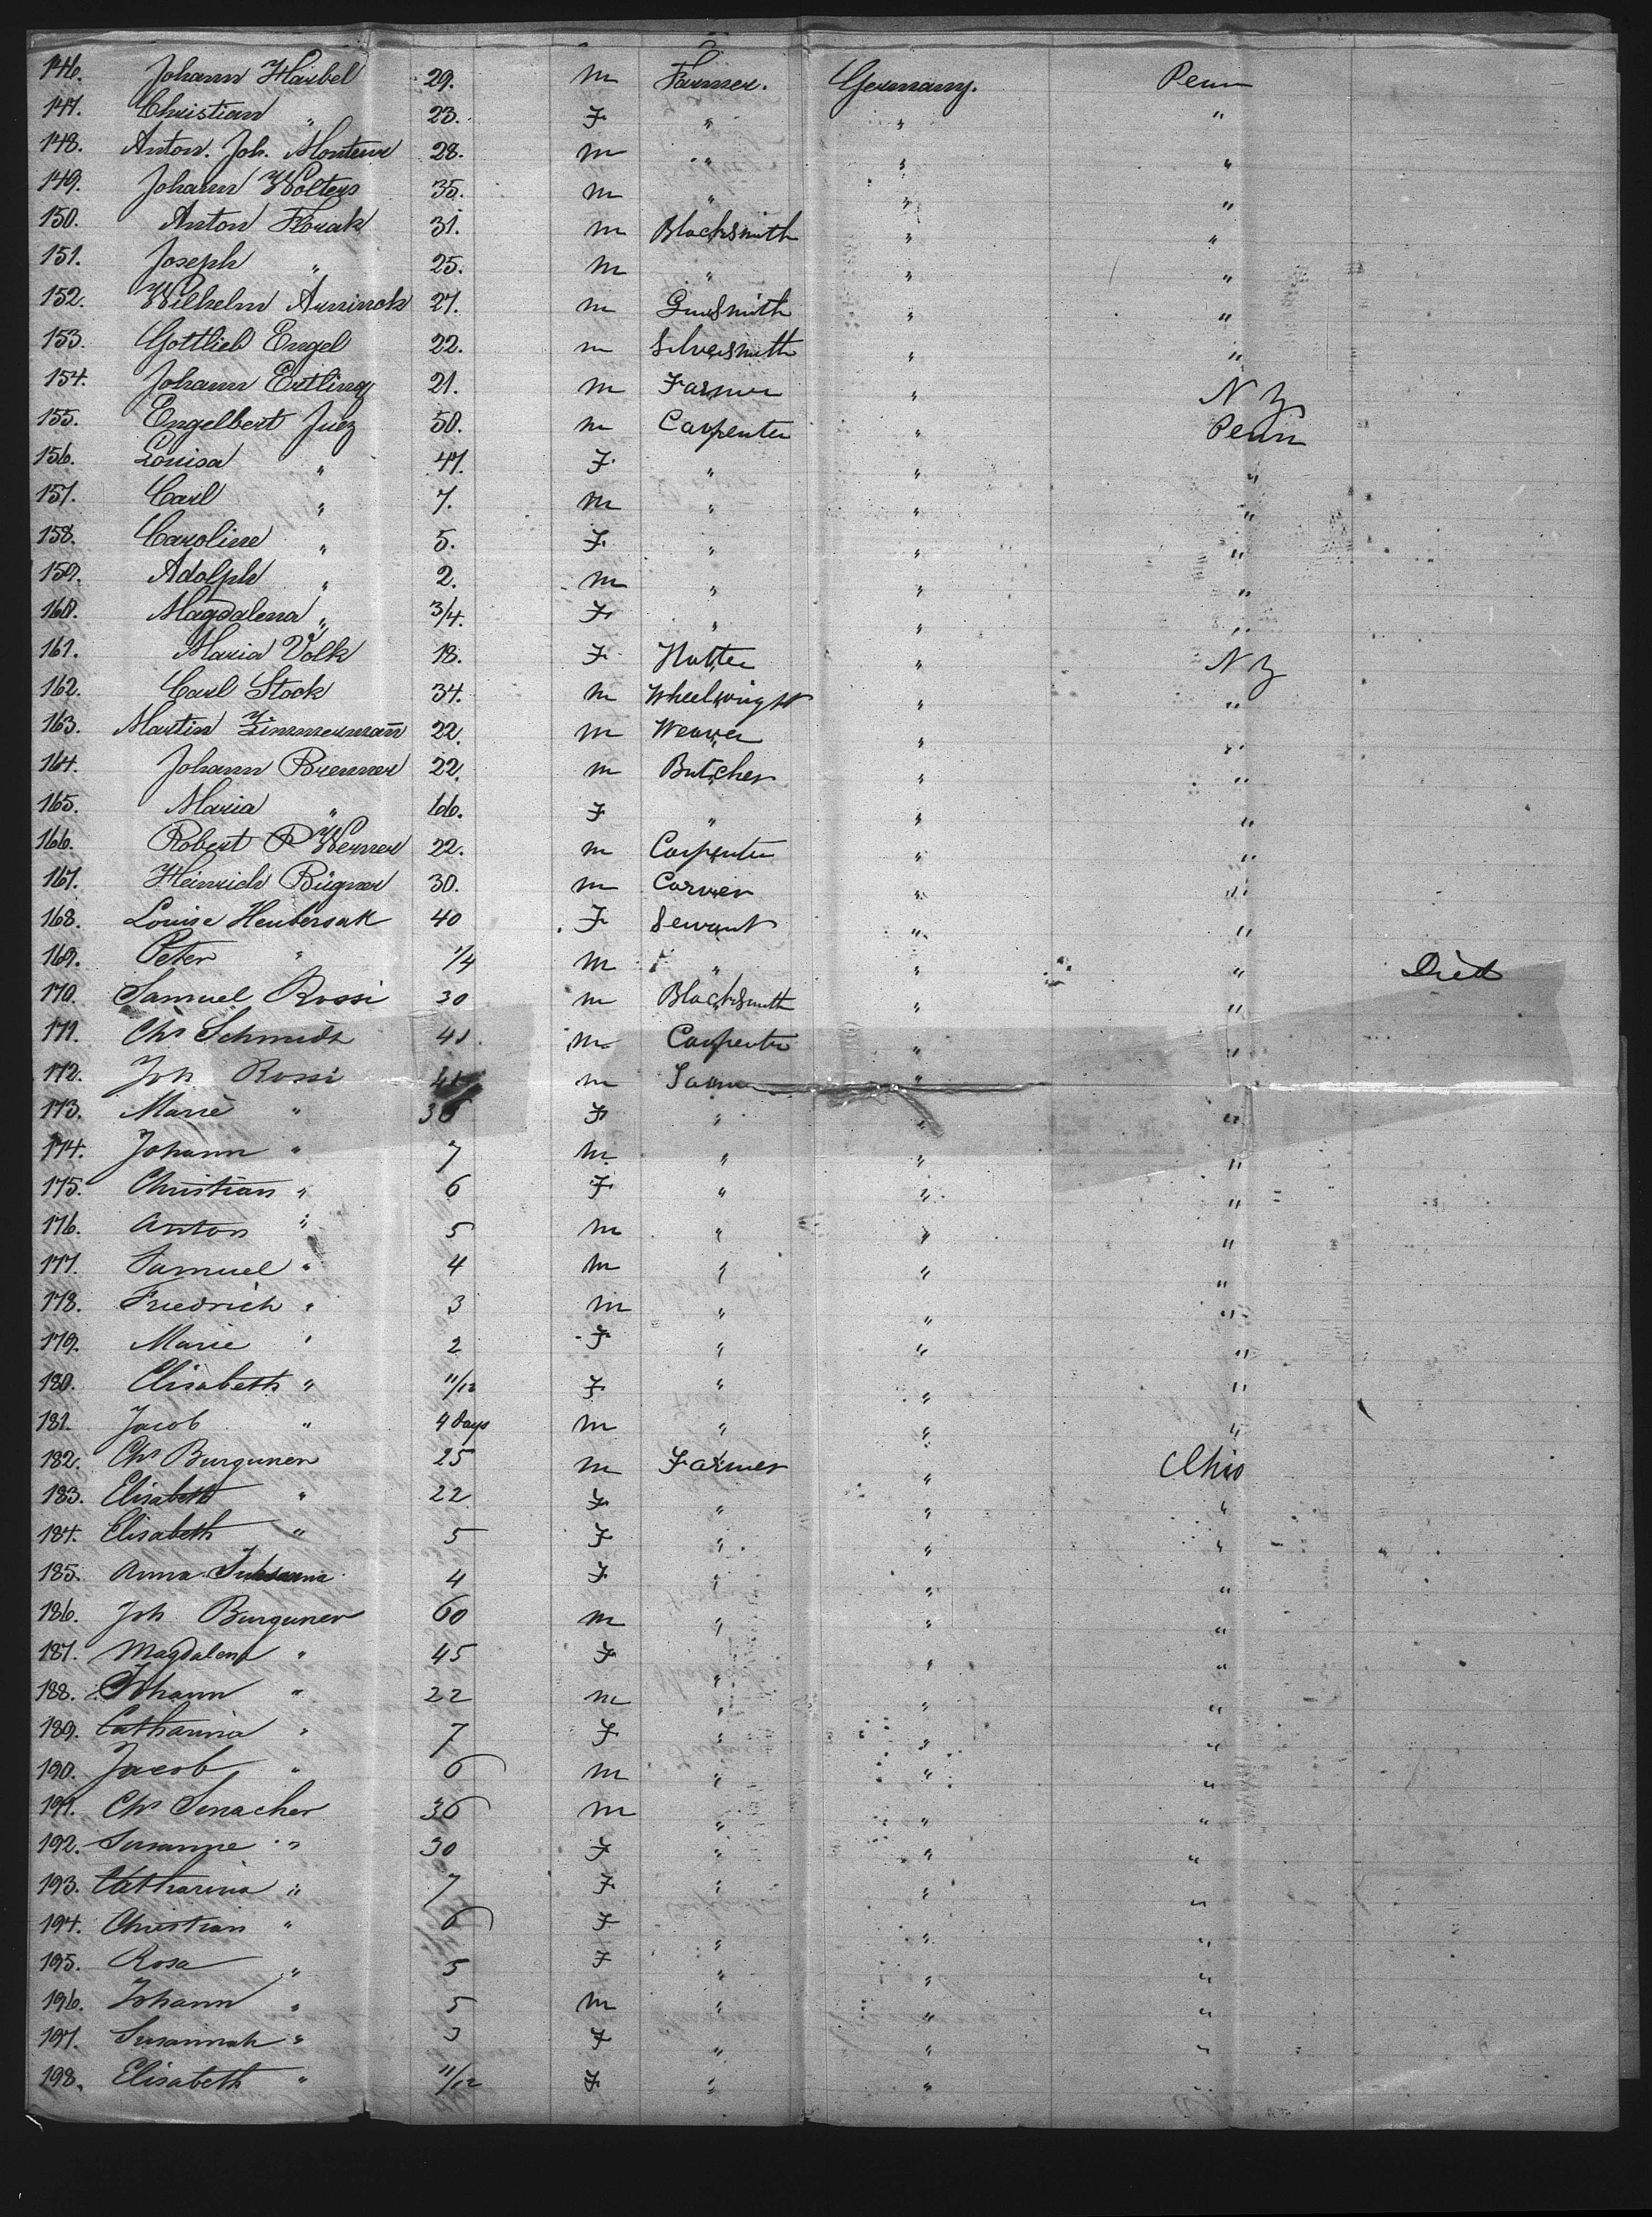 146. Johann Haubel 29. m Farmer. Germany. Penn
147. Christian " 23. F " " "
148. Anton. Joh. 28. m " " "
149. Johann Wolters 35. m " " "
150. Anton Horak 31. m Blacksmith " "
151. Joseph " 25. m " " "
152. Wilhelm 27. m Gunsmith " "
153. Gottlieb Engel 22. m Silversmith " "
154. Johann Ertling 21. m Farmer " N Y
155. Engelbert Juez 50. m Carpenter " Penn
156. Louisa " 47. F " " "
157. Carl " 7. m " " "
158. Caroline " 5. F " " "
159. Adolph " 2. m " " "
160. Magdalena " 3/4. F " " "
161. Maria Volk 18. F Hatter " N Y
162. Carl Stock 34. m Wheelwright " "
163. Martin Zimmermann 22. m Weaver " "
164. Johann Brenner 22. m Butcher " "
165. Maria " 66. F " " "
166. Robert P Werner 22. m Carpenter " "
167. Heinrich Bügner 30. m Carver " "
168. Louise Heubersak 40 F Servant " "
169. Peter " 1/4 m " " " Died
170. Samuel Rossi 30 m Blacksmith " "
171. Chr Schmidt 41 m Carpenter " "
172. Joh Rossi 41 m Farmer " "
173. Marie " 36 F " " "
174. Johann " 7 m " " "
175. Christian " 6 F " " "
176. Anton " 5 m " " "
177. Samuel " 4 m " " "
178. Friedrich " 3 m " " "
179. Marie " 2 F " " "
180. Elisabeth " 11/12 F " " "
181. Jacob " 4 days m " " "
182. Chr Burguner 25 m Farmer " Ohio
183. Elisabeth " 22 F " " "
184. Elisabeth " 5 F " " "
185. Anna Susanna 4 F " " "
186. Joh Burguner 60 m " " "
187. Magdalena " 45 F " " "
188. Johann " 22 m " " "
189. Catharina " 7 F " " "
190. Jacob " 6 m " " "
191. Chr Smacher 36 m " " "
192. Susanne " 30 F " " "
193. Catharina " 7 F " " "
194. Christian " 6 F " " "
195. Rosa " 5 F " " "
196. Johann " 5 m " " "
197. Susannah " 3 F " " "
198. Elisabeth " 11/12 F " " "